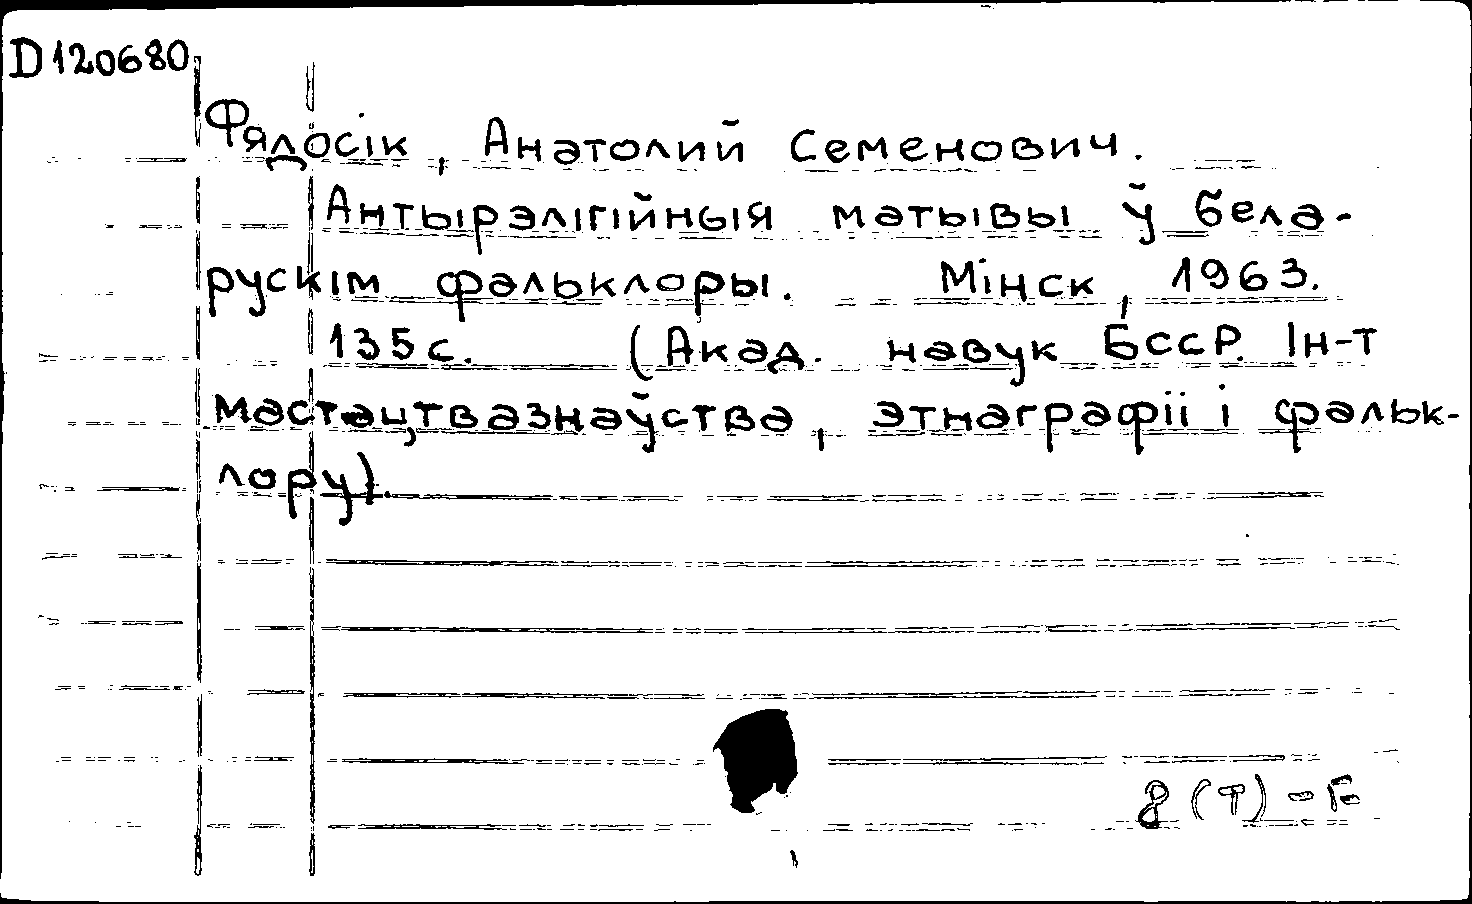 D 120680
Фядосік, Анатолий Семенович.
Антырэлігійныя матывы ў бела-
рускім фальклоры. Мінск, 1963.
135 с. (Акад. навук БССР. Ін-т
мастацтвазнаўства, этнаграфіі і фальк-
лору).
8 (Т) - F